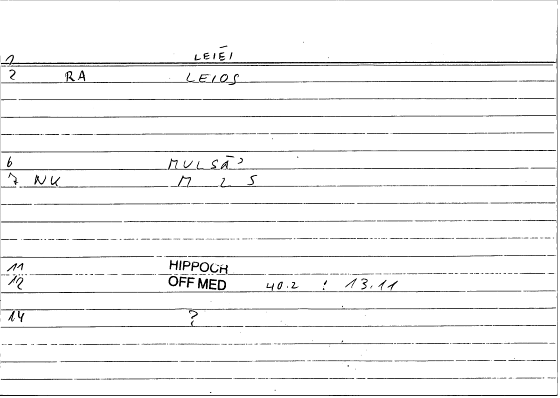 1 LEIĒI
2 RA LEIOS
6 MULSĀ'
7 NK M 2 S
11 HIPPOCH
12 OFF MED 40.2 ! 13.11
14 ?